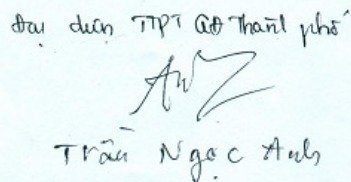 Đại diện TTPT QĐ Thành phố
Trần Ngọc Anh